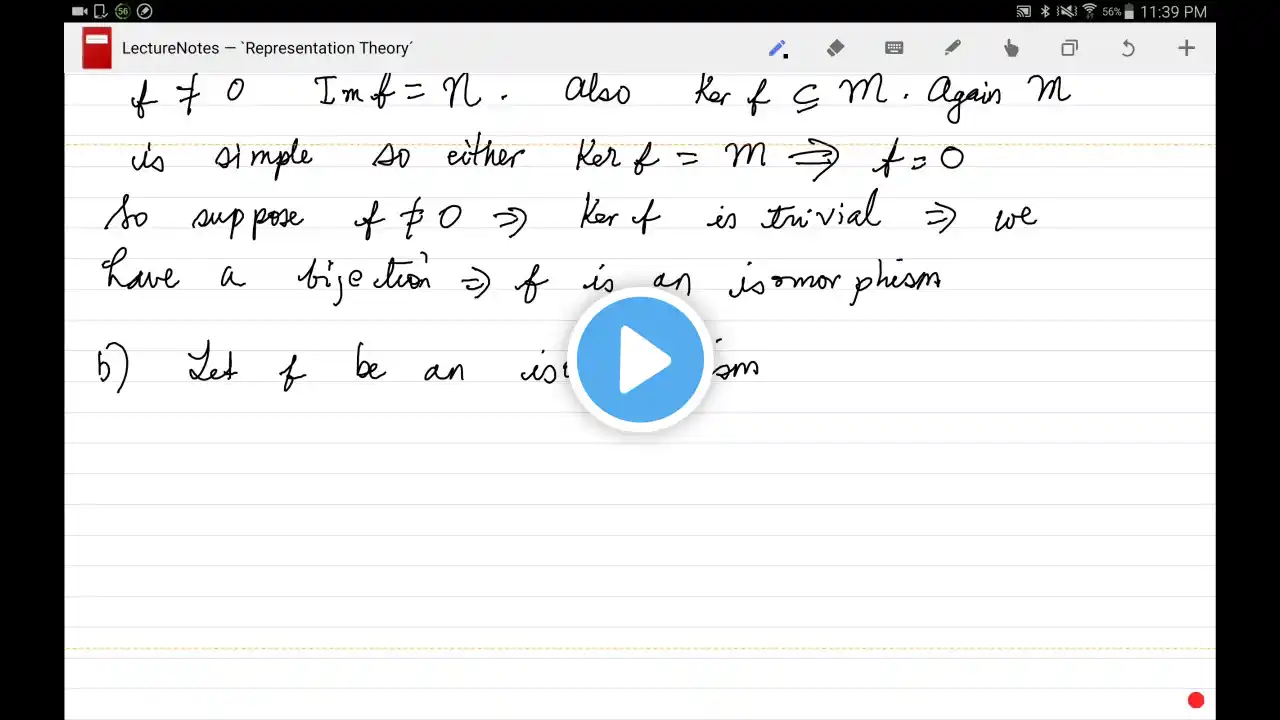 56
56% 11:39 PM
LectureNotes — `Representation Theory´
f ≠ 0 Im f = N. Also Ker f ⊆ M. Again M
is simple so either Ker f = M ⇒ f = 0
So suppose f ≠ 0 ⇒ Ker f is trivial ⇒ we
have a bijection ⇒ f is an isomorphism
b) Let f be an